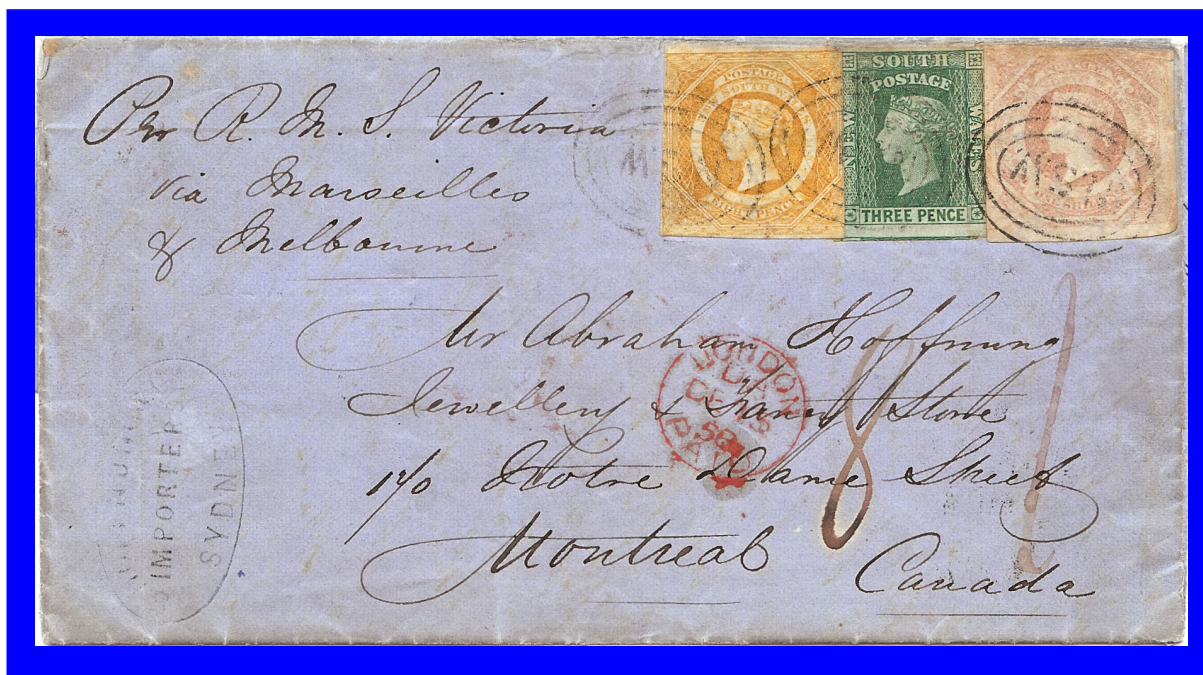 Per R. M. S. Victoria
via Marseilles
& Melbourne
POSTAGE
SOUTH WALES
EIGHT PENCE
SOUTH
POSTAGE
NEW
WALES
THREE PENCE
NSW
NSW
Mr Abraham Hoffnung
Jewellery & Fancy Store
170 Notre Dame Street
Montreal
Canada
LONDON
DE 15
PAID
8
1
IMPORTER
SYDNEY